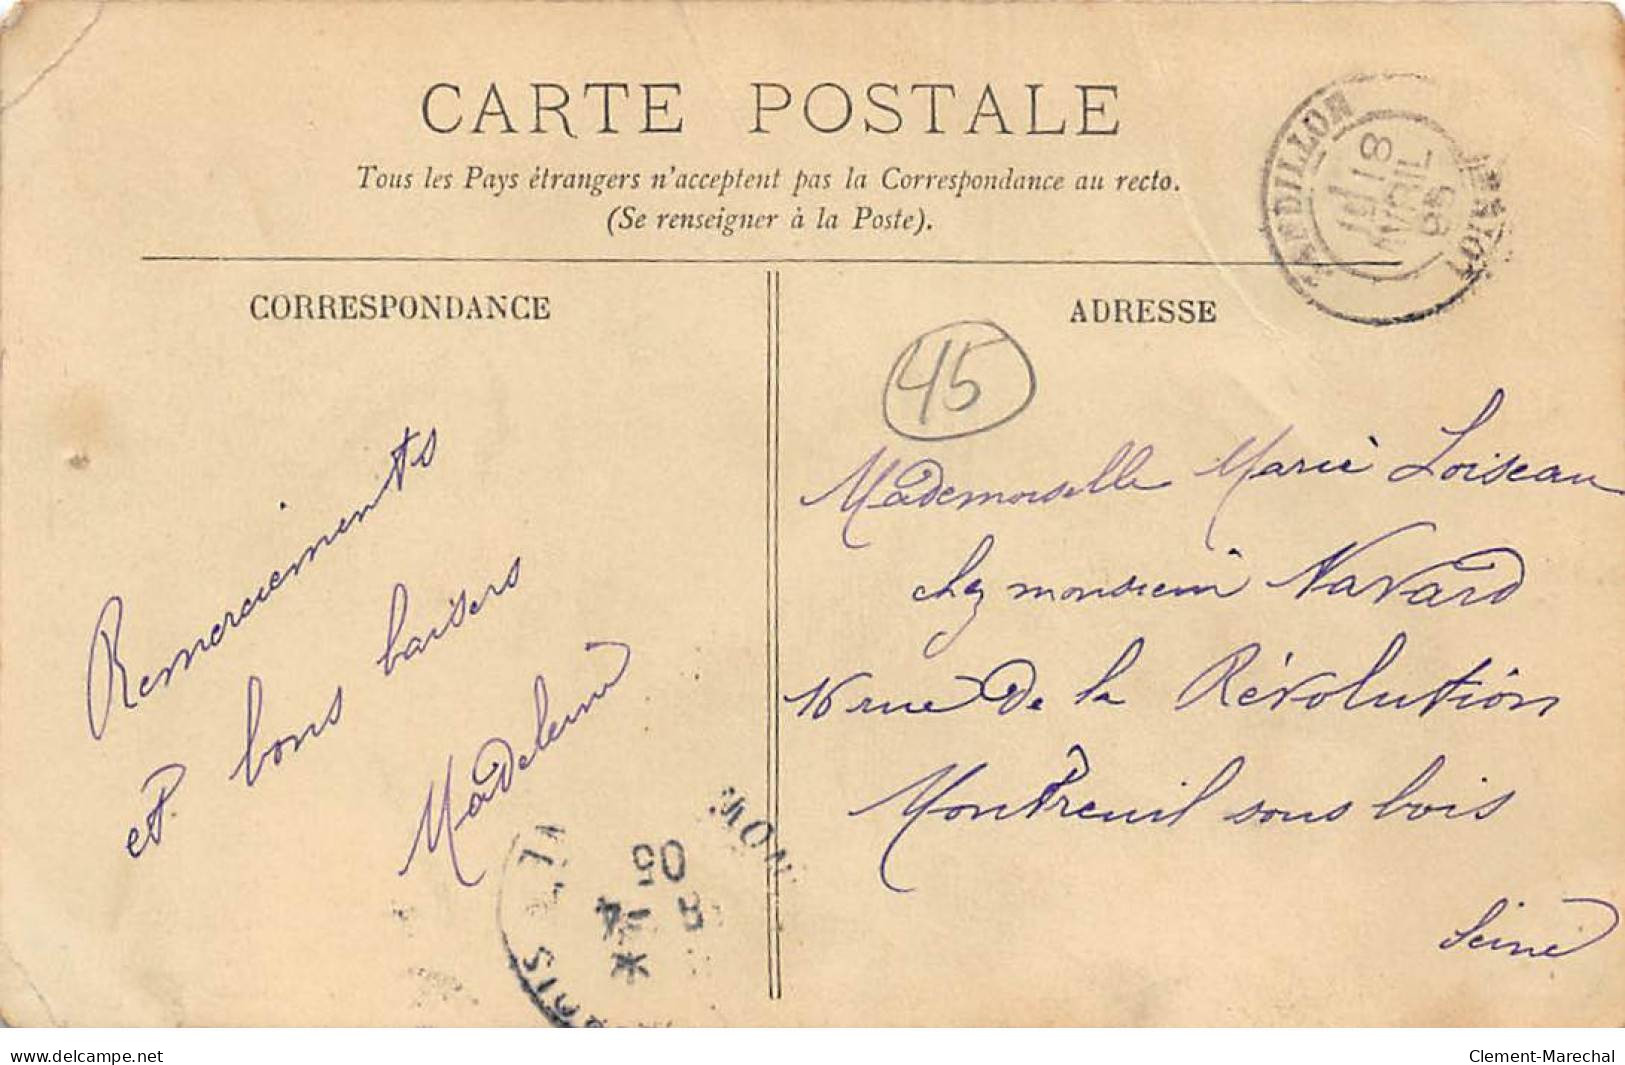 CARTE POSTALE
Tous les Pays étrangers n'acceptent pas la Correspondance au recto.
(Se renseigner à la Poste).
CORRESPONDANCE
Remerciements
et bons baisers
Madeleine
ADRESSE
45
Mademoiselle Marie Loiseau
chez monsieur Navard
rue de la Révolution
Montreuil sous bois
Seine
18
AVRIL
05
LOIRET
MON
05
4
8
*
delcampe.net
Clement-Marechal